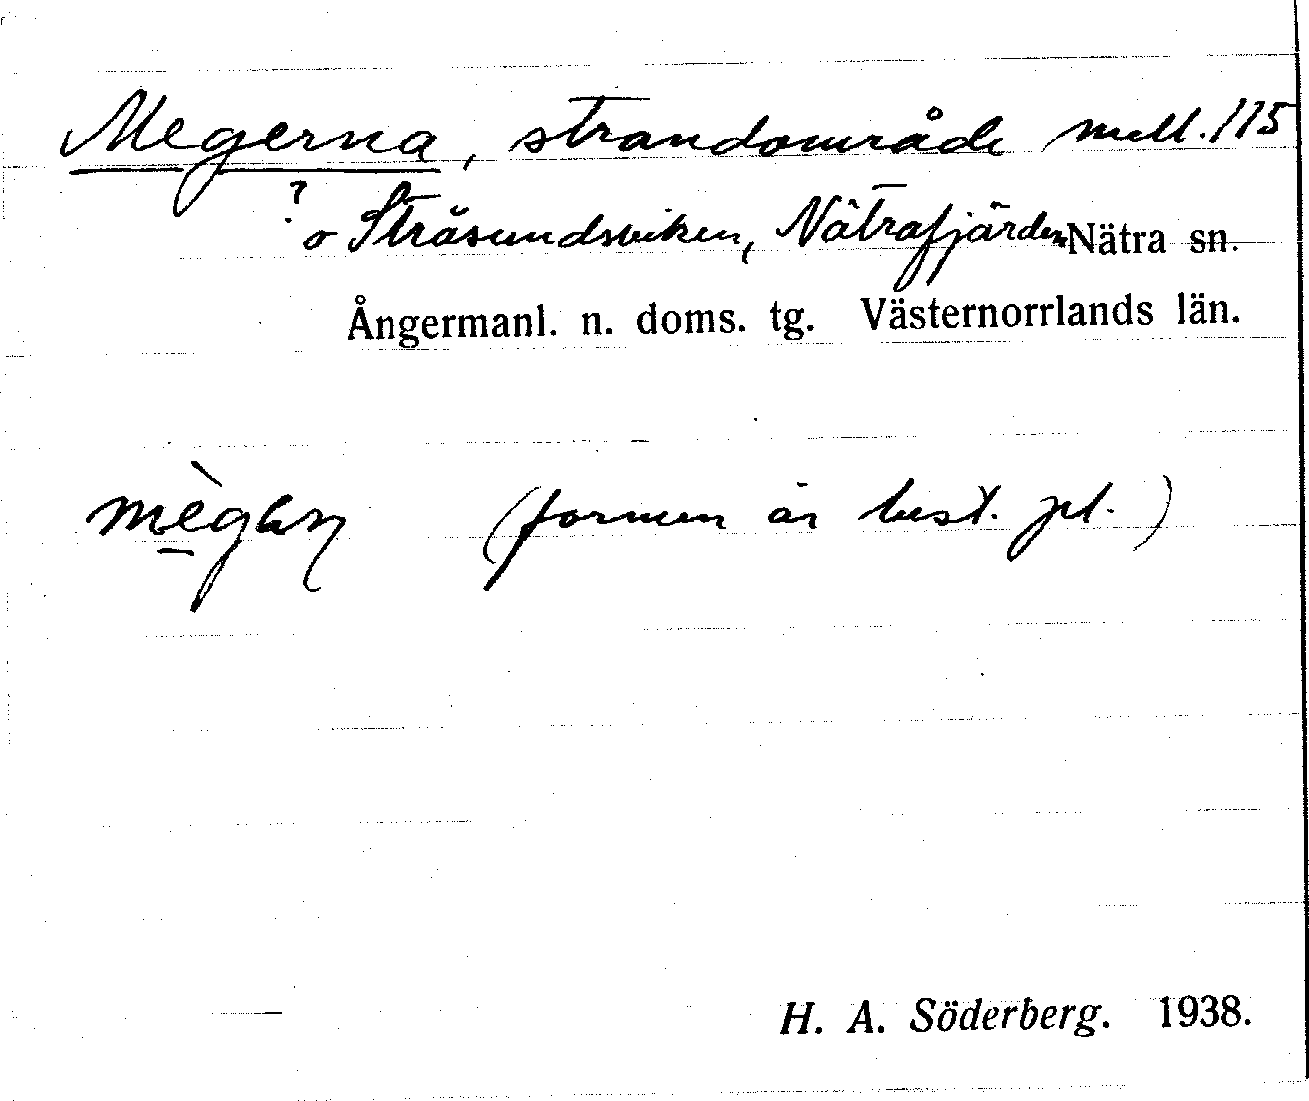 Megerna, strandområde mell. 115
? o Stråsundsviken, Nätrafjärden Nätra sn.
Ångermanl. n. doms. tg. Västernorrlands län.
(formen är best. pl.)
H. A. Söderberg. 1938.